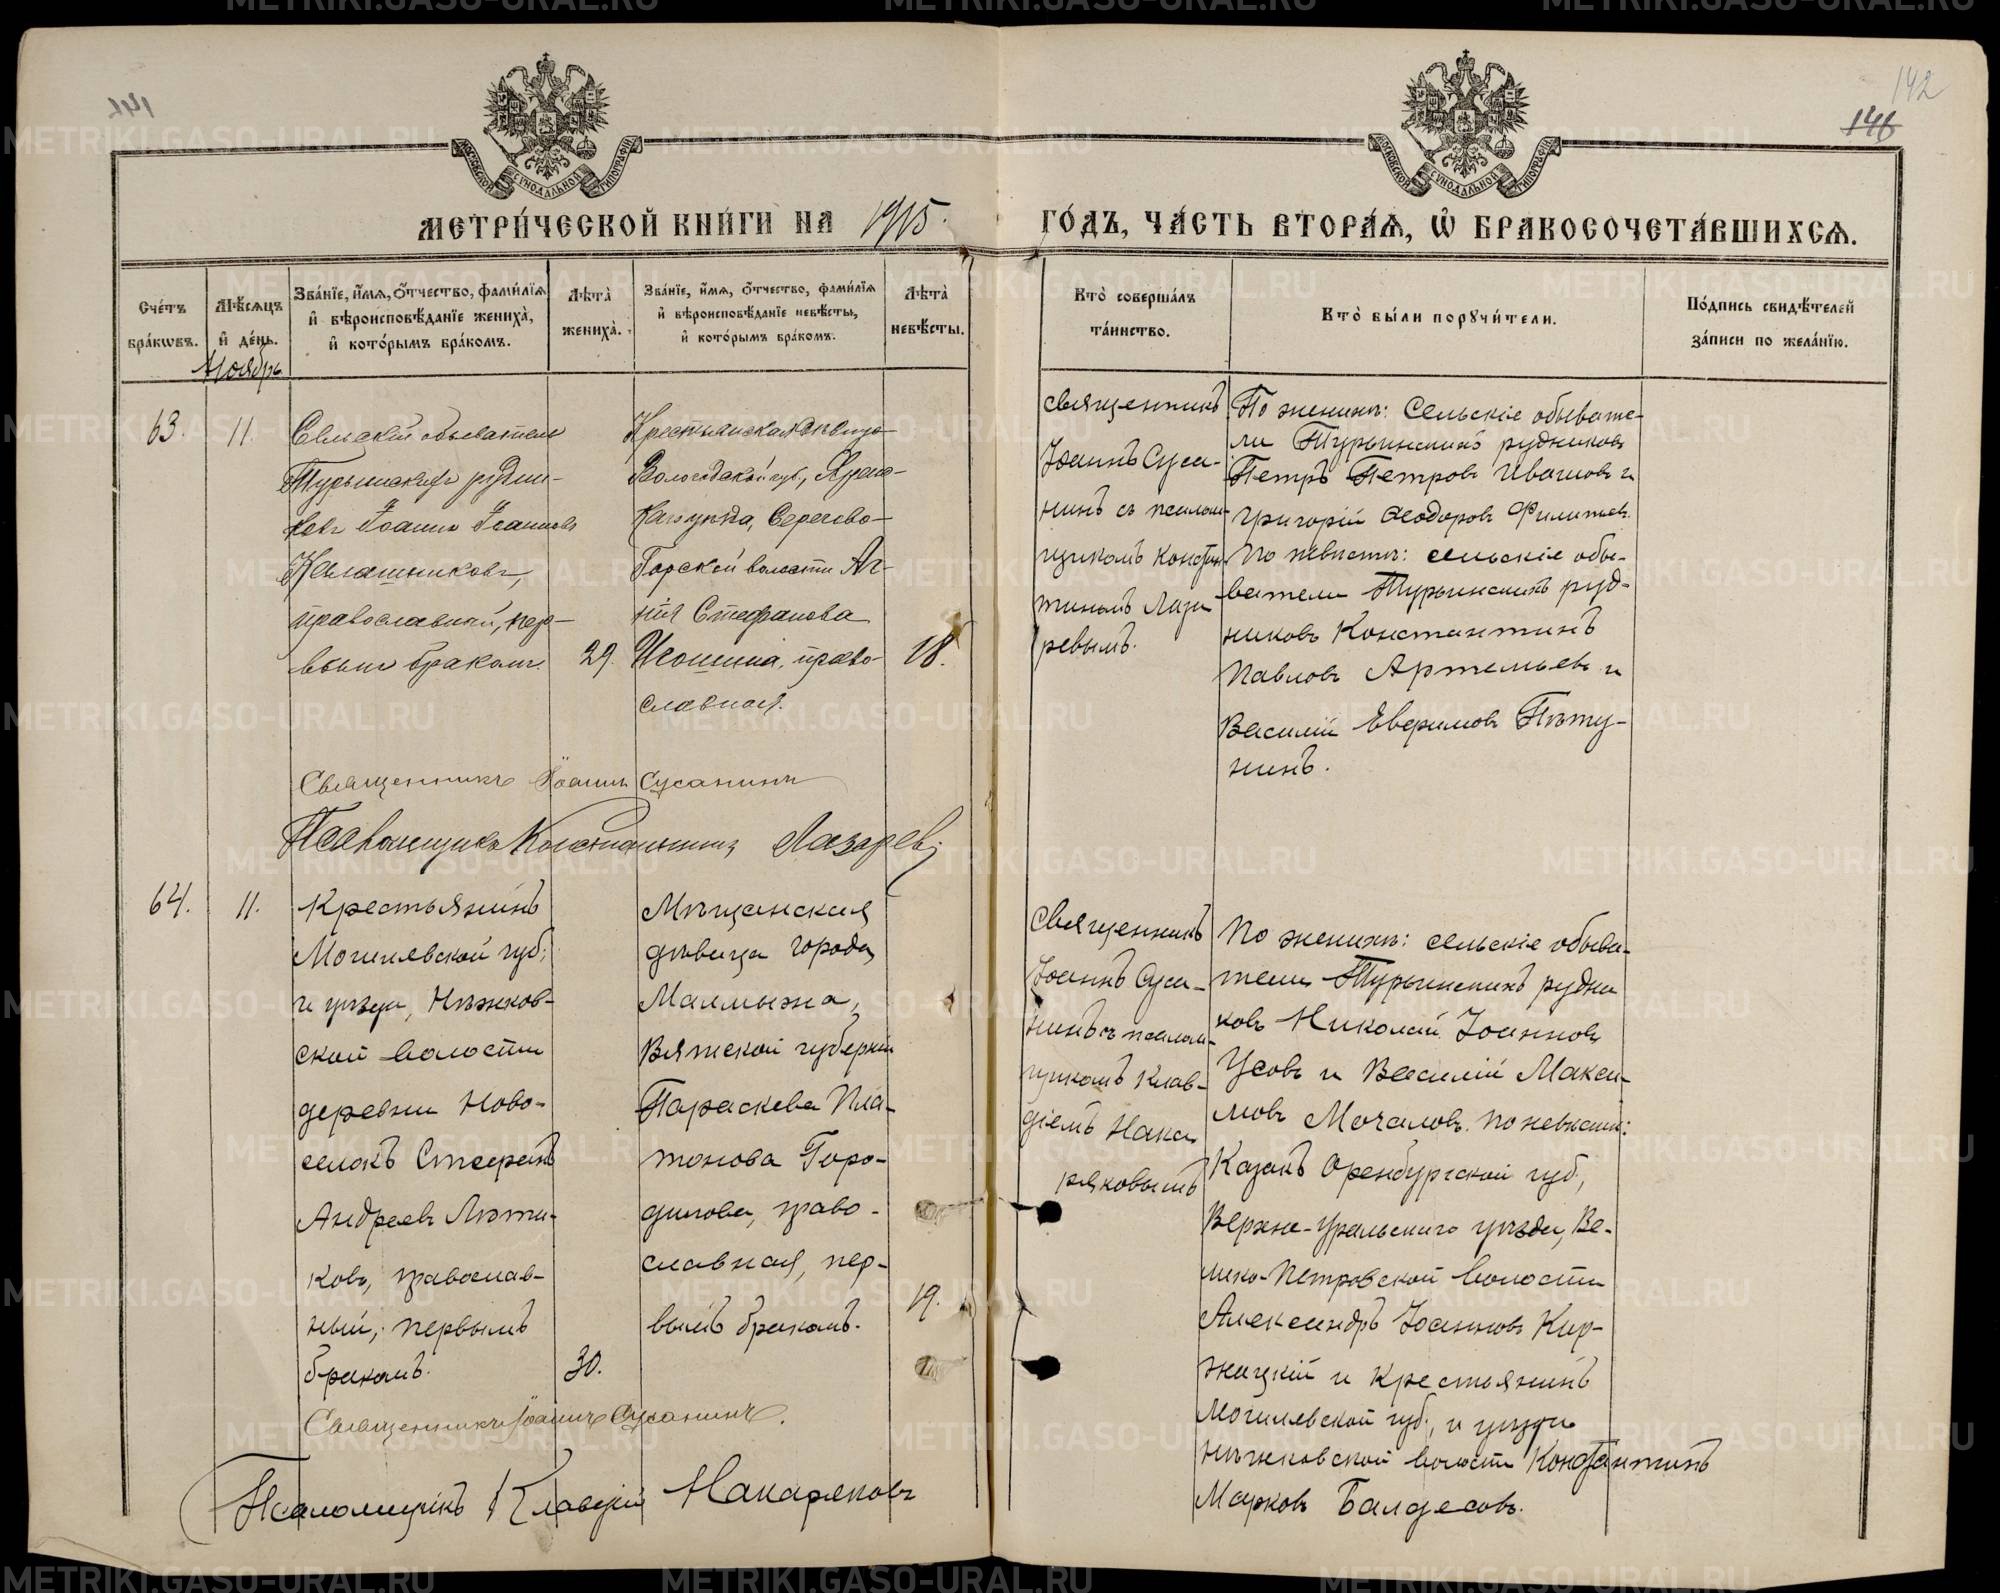 142
146
МЕТРИ́ЧЕСКОЙ КНИ́ГИ НА 1915.
ГО́ДЪ, ЧА́СТЬ ВТОРА́Я, Ѡ҆ БРАКОСОЧЕТА́ВШИХСѦ.
Сче́тъ бра́кѡвъ.
Мѣ́сѧцъ и҆ де́нь.
Ноябрь
Зва́нїе, и҆́мѧ, ѻ҆́тчество, фами́лїѧ
и҆ вѣроисповѣ́данїе жениха̀,
и҆ кото́рымъ бра́комъ.
Лѣ́та жениха̀.
Зва́нїе, и҆́мѧ, ѻ҆́тчество, фами́лїѧ
и҆ вѣроисповѣ́данїе невѣ́сты,
и҆ кото́рымъ бра́комъ.
Лѣ́та невѣ́сты.
Кто̀ соверша́лъ
та́инство.
Кто̀ бы́ли порꙋчи́тели.
По́дпись свидѣ́телей
за́писи по жела́нїю.
63.
11.
Сельскій обыватель
Турьинскихъ рудни-
ковъ Іоаннъ Іоанновъ
Калашниковъ,
православный, пер-
вымъ бракомъ.
29.
Крестьянская девица
Вологодской губ., Ярен-
скаго уезда, Серегово-
Горской волости Ан-
нія Стефанова
Игошина, право-
славная.
18.
Священникъ
Іоаннъ Суса-
нинъ съ псалом-
щикомъ Констан-
тиномъ Лаза
ревымъ.
По женихѣ: сельскіе обывате-
ли Турьинскихъ рудниковъ
Петръ Петровъ Ивашовъ и
Григорій Ѳеодоровъ Филипьев.
По невѣстѣ: сельскіе обы-
ватели Турьинскихъ руд-
никовъ Константинъ
Павловъ Артемьевъ и
Василій Евфимовъ Пѣту-
нинъ.
Священникъ Іоаннъ Сусанинъ
Псаломщикъ Константинъ Лазаревъ
64.
11.
Крестьянинъ
Могилевской губ.
и уѣзда, Нѣжков-
ской волости
деревни Ново-
селокъ Стефанъ
Андреевъ Лѣти-
ковъ, православ-
ный, первымъ
бракомъ.
30.
Мѣщанская
дѣвица города
Малмыжа,
Вятской губерніи
Параскева Пла-
тонова Горо-
дилова, право-
славная, пер-
вымъ бракомъ.
19.
Священникъ
Іоаннъ Суса-
нинъ съ псалом-
щикомъ Клав-
діемъ Нака
ряковымъ
По женихѣ: сельскіе обыва-
тели Турьинскихъ рудни
ковъ Николай Іоанновъ
Усовъ и Василій Макси-
мовъ Мочаловъ. По невѣстѣ:
Казакъ Оренбургской губ.,
Верхне-Уральскаго уѣзда, Ве-
лико-Петровской волости
Александръ Іоанновъ Кир-
жацкій и крестьянинъ
Могилевской губ., и уѣзда
Нѣжковской волости Константинъ
Марковъ Балдесовъ.
Священникъ Іоаннъ Сусанинъ.
Псаломщикъ Клавдій Накаряковъ